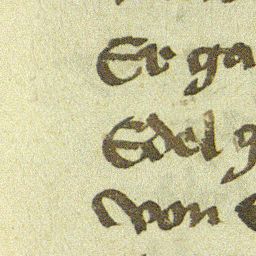 Er ga
Edel g
Von